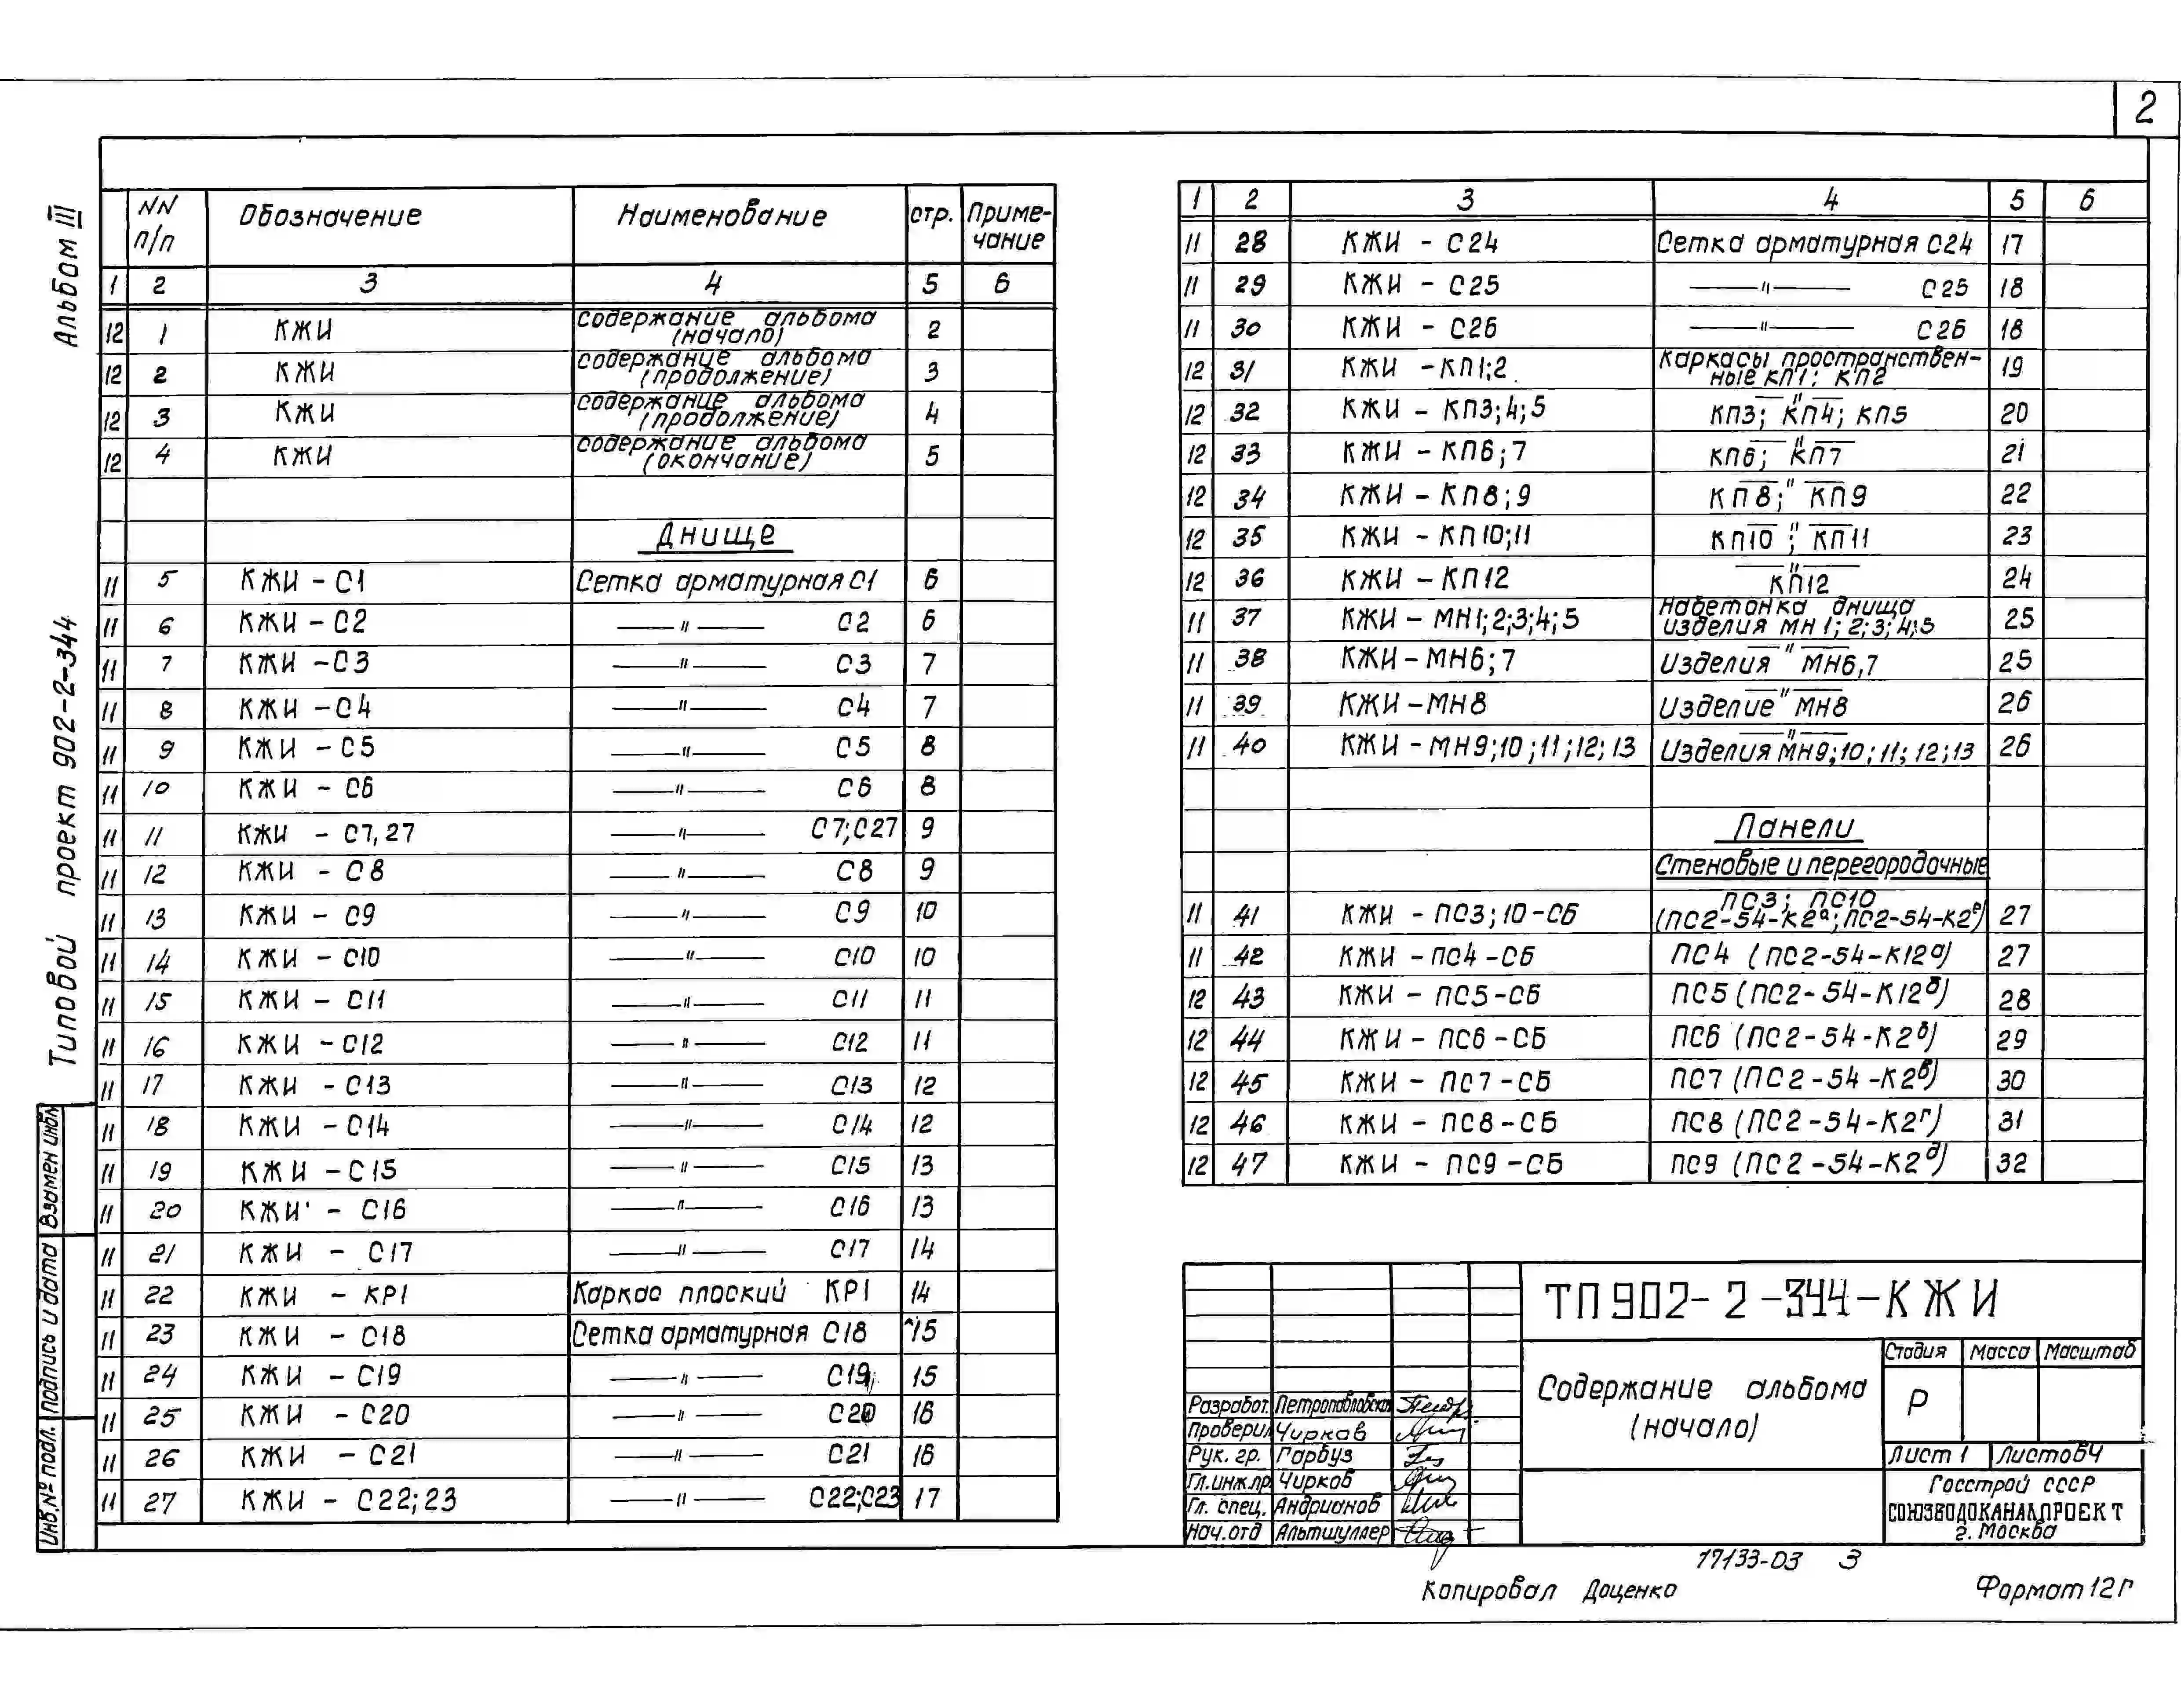 2
Альбом III
Типовой проект 902-2-344
NN п/п Обозначение Наименование стр. Приме-чание
1 2 3 4 5 6
12 1 КЖИ содержание альбома (начало) 2
12 2 КЖИ содержание альбома (продолжение) 3
12 3 КЖИ содержание альбома (продолжение) 4
12 4 КЖИ содержание альбома (окончание) 5
Днище
11 5 КЖИ - С1 Сетка арматурная С1 6
11 6 КЖИ - С2 —"— С2 6
11 7 КЖИ - С3 —"— С3 7
11 8 КЖИ - С4 —"— С4 7
11 9 КЖИ - С5 —"— С5 8
11 10 КЖИ - С6 —"— С6 8
11 11 КЖИ - С7,27 —"— С7;С27 9
11 12 КЖИ - С8 —"— С8 9
11 13 КЖИ - С9 —"— С9 10
11 14 КЖИ - С10 —"— С10 10
11 15 КЖИ - С11 —"— С11 11
11 16 КЖИ - С12 —"— С12 11
11 17 КЖИ - С13 —"— С13 12
11 18 КЖИ - С14 —"— С14 12
11 19 КЖИ - С15 —"— С15 13
11 20 КЖИ - С16 —"— С16 13
11 21 КЖИ - С17 —"— С17 14
11 22 КЖИ - КР1 Каркас плоский КР1 14
11 23 КЖИ - С18 Сетка арматурная С18 15
11 24 КЖИ - С19 —"— С19 15
11 25 КЖИ - С20 —"— С20 16
11 26 КЖИ - С21 —"— С21 16
11 27 КЖИ - С22;23 —"— С22;С23 17
1 2 3 4 5 6
11 28 КЖИ - С24 Сетка арматурная С24 17
11 29 КЖИ - С25 —"— С25 18
11 30 КЖИ - С26 —"— С26 18
12 31 КЖИ - КП1;2 Каркасы пространствен-ные КП1; КП2 19
12 32 КЖИ - КП3;4;5 —"— КП3; КП4; КП5 20
12 33 КЖИ - КП6;7 —"— КП6; КП7 21
12 34 КЖИ - КП8;9 —"— КП8; КП9 22
12 35 КЖИ - КП10;11 —"— КП10; КП11 23
12 36 КЖИ - КП12 —"— КП12 24
11 37 КЖИ - МН1;2;3;4;5 Набетонка днища изделия МН1;2;3;4;5 25
11 38 КЖИ - МН6;7 Изделия —"— МН6,7 25
11 39 КЖИ - МН8 Изделие —"— МН8 26
11 40 КЖИ - МН9;10;11;12;13 Изделия —"— МН9;10;11;12;13 26
Панели
Стеновые и перегородочные
11 41 КЖИ - ПС3;10-СБ ПС3; ПС10 (ПС2-54-К2а; ПС2-54-К2е) 27
11 42 КЖИ - ПС4-СБ ПС4 (ПС2-54-К12а) 27
12 43 КЖИ - ПС5-СБ ПС5 (ПС2-54-К12б) 28
12 44 КЖИ - ПС6-СБ ПС6 (ПС2-54-К2б) 29
12 45 КЖИ - ПС7-СБ ПС7 (ПС2-54-К2в) 30
12 46 КЖИ - ПС8-СБ ПС8 (ПС2-54-К2г) 31
12 47 КЖИ - ПС9-СБ ПС9 (ПС2-54-К2д) 32
Взамен инв№
Подпись и дата
Инв.№ подл.
ТП902-2-344-КЖИ
Содержание альбома
(начало)
Стадия Масса Масштаб
Р
Лист 1 Листов 4
Госстрой СССР
СОЮЗВОДОКАНАЛПРОЕКТ
г. Москва
Разработ. Петропавловская
Проверил Чирков
Рук. гр. Гарбуз
Гл.инж.пр. Чирков
Гл. спец. Андрианов
Нач.отд Альтшуллер
17133-03 3
Копировал Доценко
Формат 12Г